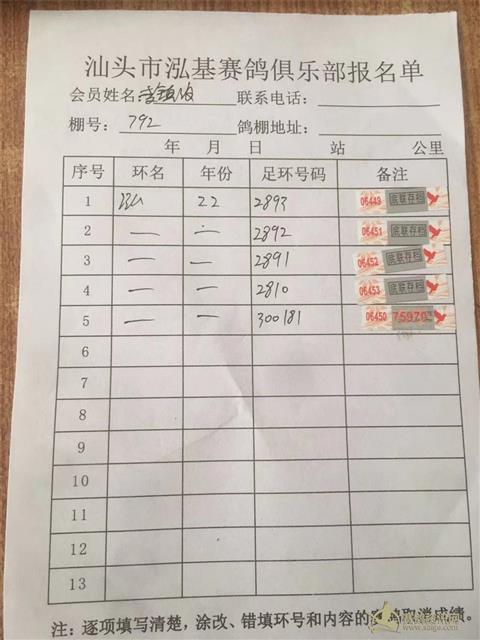 汕头市泓基赛鸽俱乐部报名单
会员姓名: 联系电话:
棚号: 792 鸽棚地址:
年 月 日 站 公里
序号 环名 年份 足环号码 备注
1 泓 22 2893 06449 底联存档
2 — — 2892 06451 底联存档
3 — — 2891 06452 底联存档
4 — — 2810 06453 底联存档
5 — — 300181 06450 75970
6
7
8
9
10
11
12
13
注: 逐项填写清楚,涂改、错填环号和内容的赛鸽取消成绩。